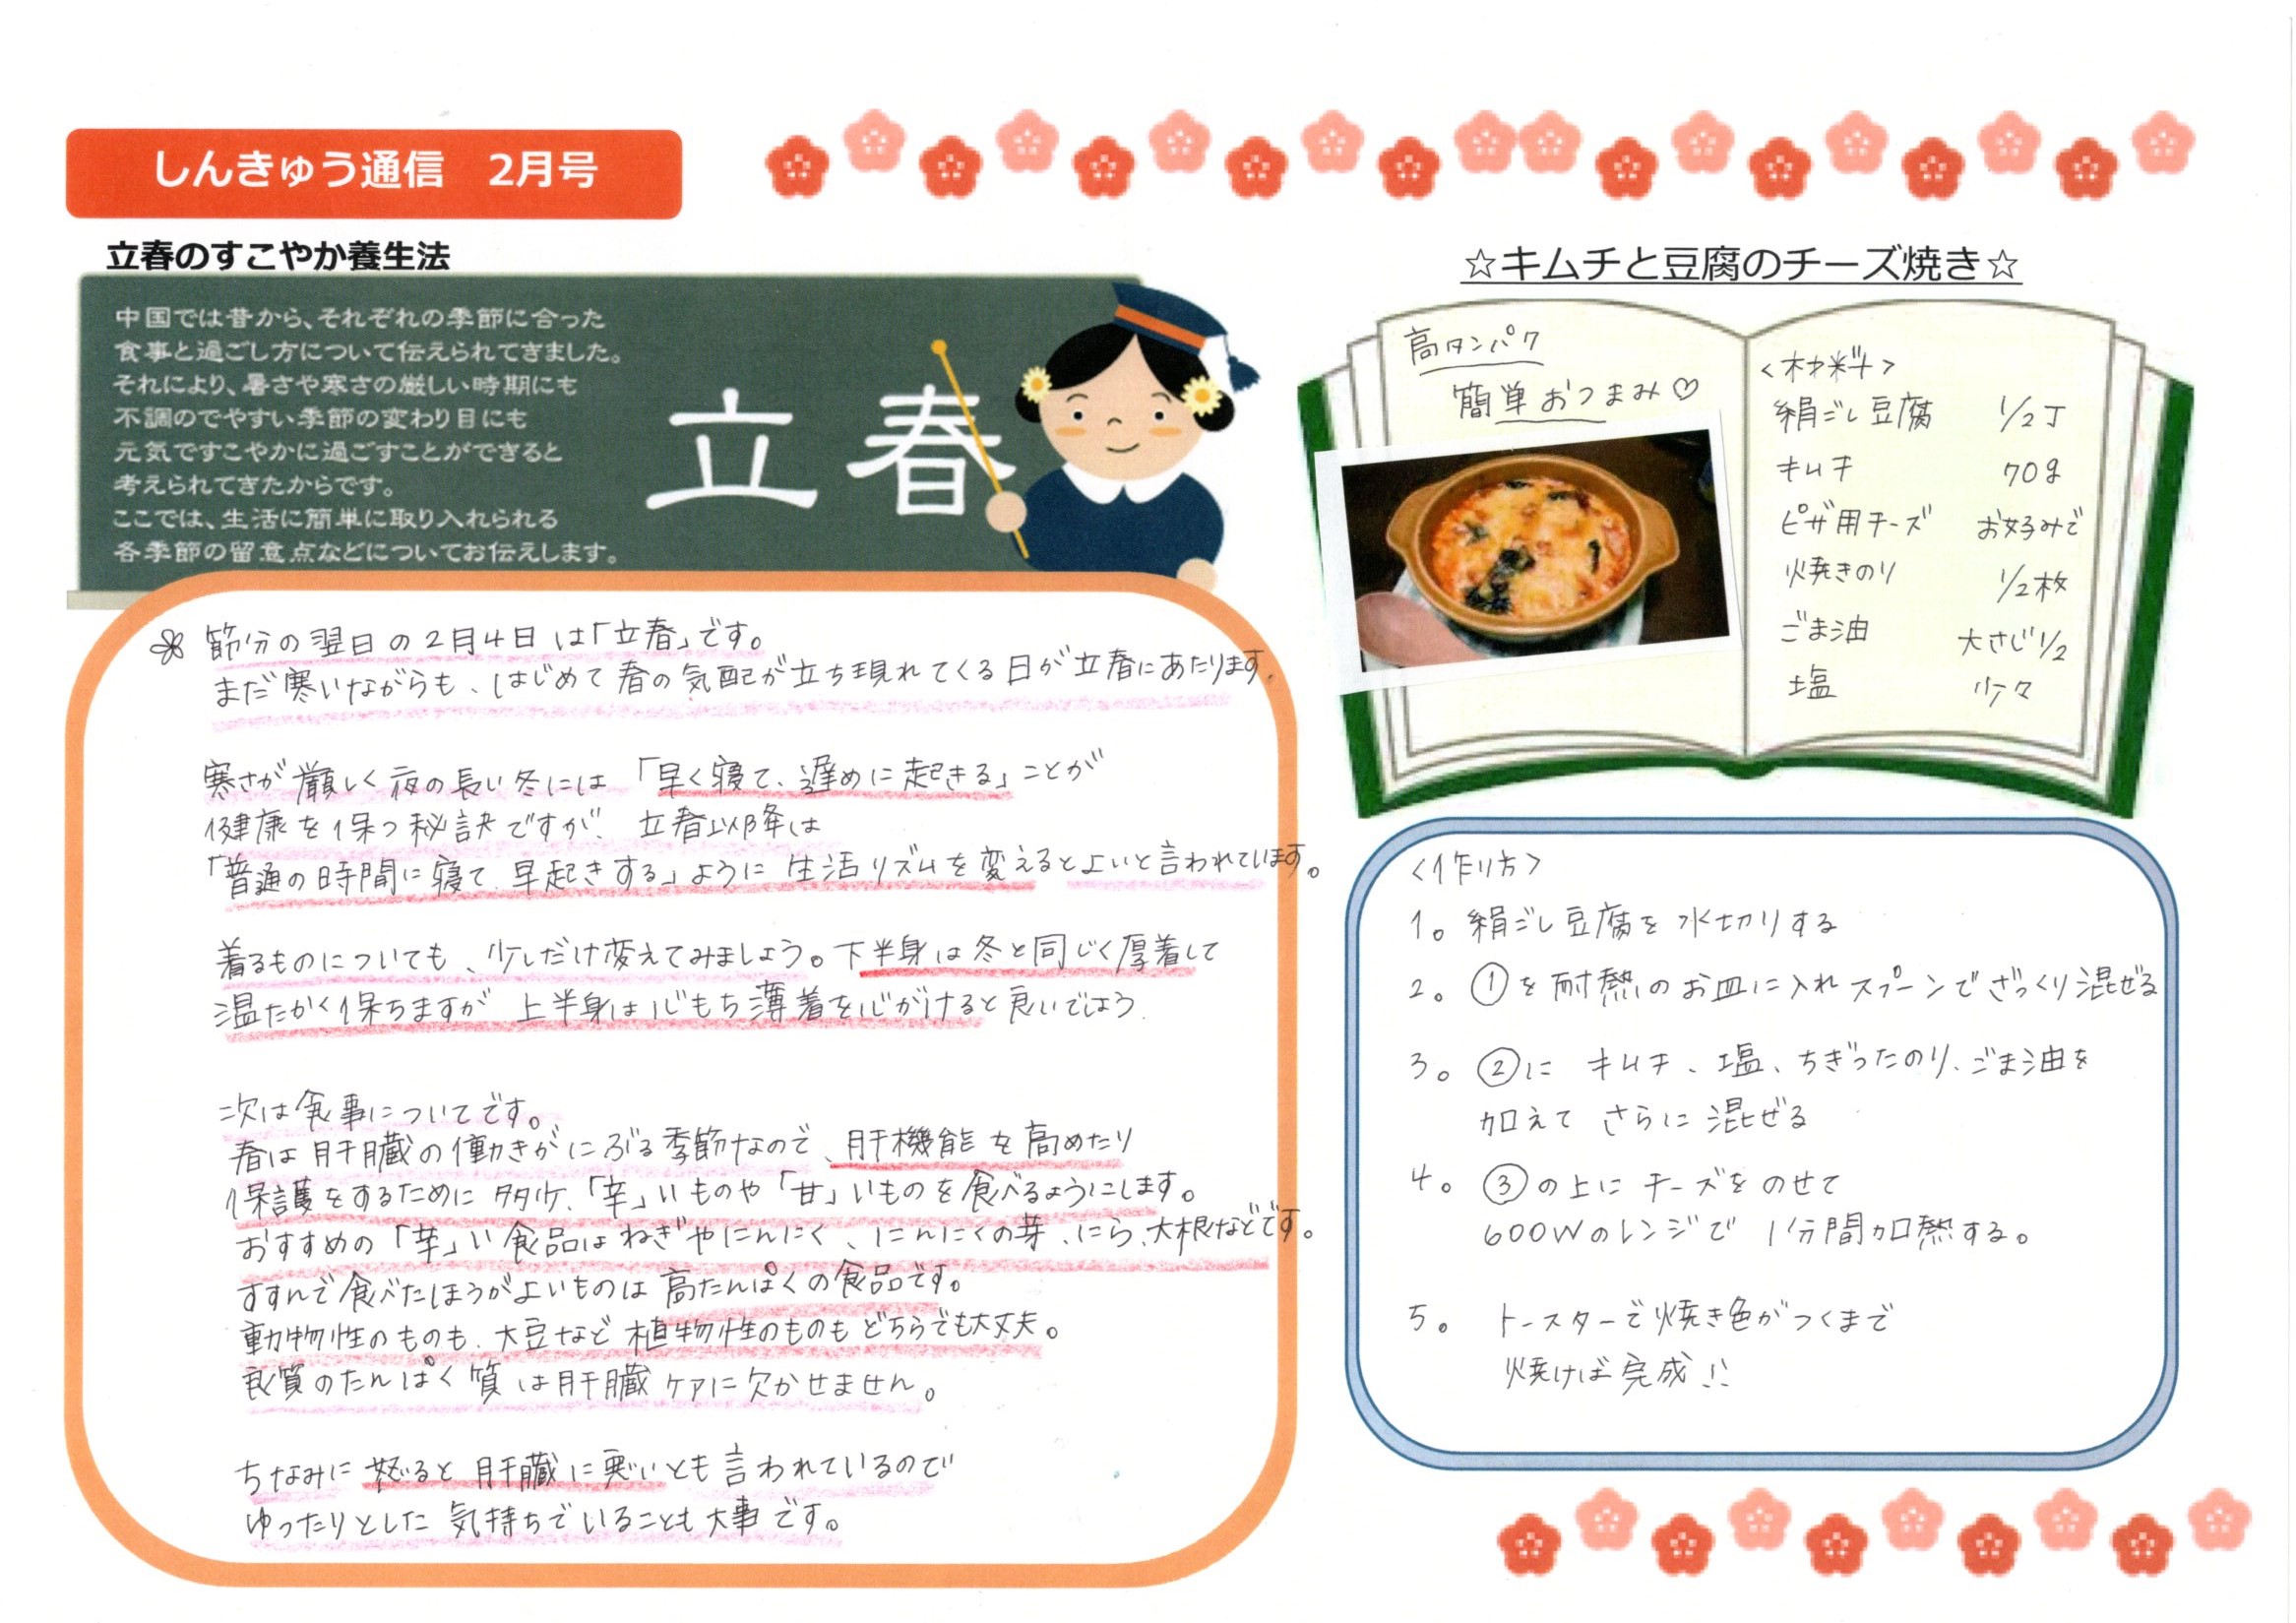 しんきゅう通信　2月号
立春のすこやか養生法
中国では昔から、それぞれの季節に合った
食事と過ごし方について伝えられてきました。
それにより、暑さや寒さの厳しい時期にも
不調のでやすい季節の変わり目にも
元気ですこやかに過ごすことができると
考えられてきたからです。
ここでは、生活に簡単に取り入れられる
各季節の留意点などについてお伝えします。
立春
節分の翌日の2月4日は「立春」です。
まだ寒いながらも、はじめて春の気配が立ち現れてくる日が立春にあたります。
寒さが厳しく夜の長い冬には「早く寝て、遅めに起きる」ことが
健康を保つ秘訣ですが、立春以降は
「普通の時間に寝て、早起きする」ように生活リズムを変えるとよいと言われています。
着るものについても、少しだけ変えてみましょう。下半身は冬と同じく厚着して
温たかく保ちますが 上半身は心もち薄着を心がけると良いでしょう。
次は食事についてです。
春は肝臓の働きがにぶる季節なので、肝機能を高めたり
保護をするために多少、「辛」いものや「甘」いものを食べるようにします。
おすすめの「辛」い食品はねぎやにんにく、にんにくの芽、にら、大根などです。
すすんで食べたほうがよいものは高たんぱくの食品です。
動物性のものも、大豆など植物性のものもどちらでも大丈夫。
良質のたんぱく質は肝臓ケアに欠かせません。
ちなみに怒ると肝臓に悪いとも言われているので
ゆったりとした気持ちでいることも大事です。
☆キムチと豆腐のチーズ焼き☆
高タンパク
簡単おつまみ♡
<材料>
絹ごし豆腐　1/2丁
キムチ　70g
ピザ用チーズ　お好みで
焼きのり　1/2枚
ごま油　大さじ1/2
塩　少々
<作り方>
1。絹ごし豆腐を水切りする
2。①を耐熱のお皿に入れスプーンでざっくり混ぜる
3。②に キムチ、塩、ちぎったのり、ごま油を
加えて さらに混ぜる
4。③の上にチーズをのせて
600Wのレンジで 1分間加熱する。
5。トースターで焼き色がつくまで
焼けば完成!!